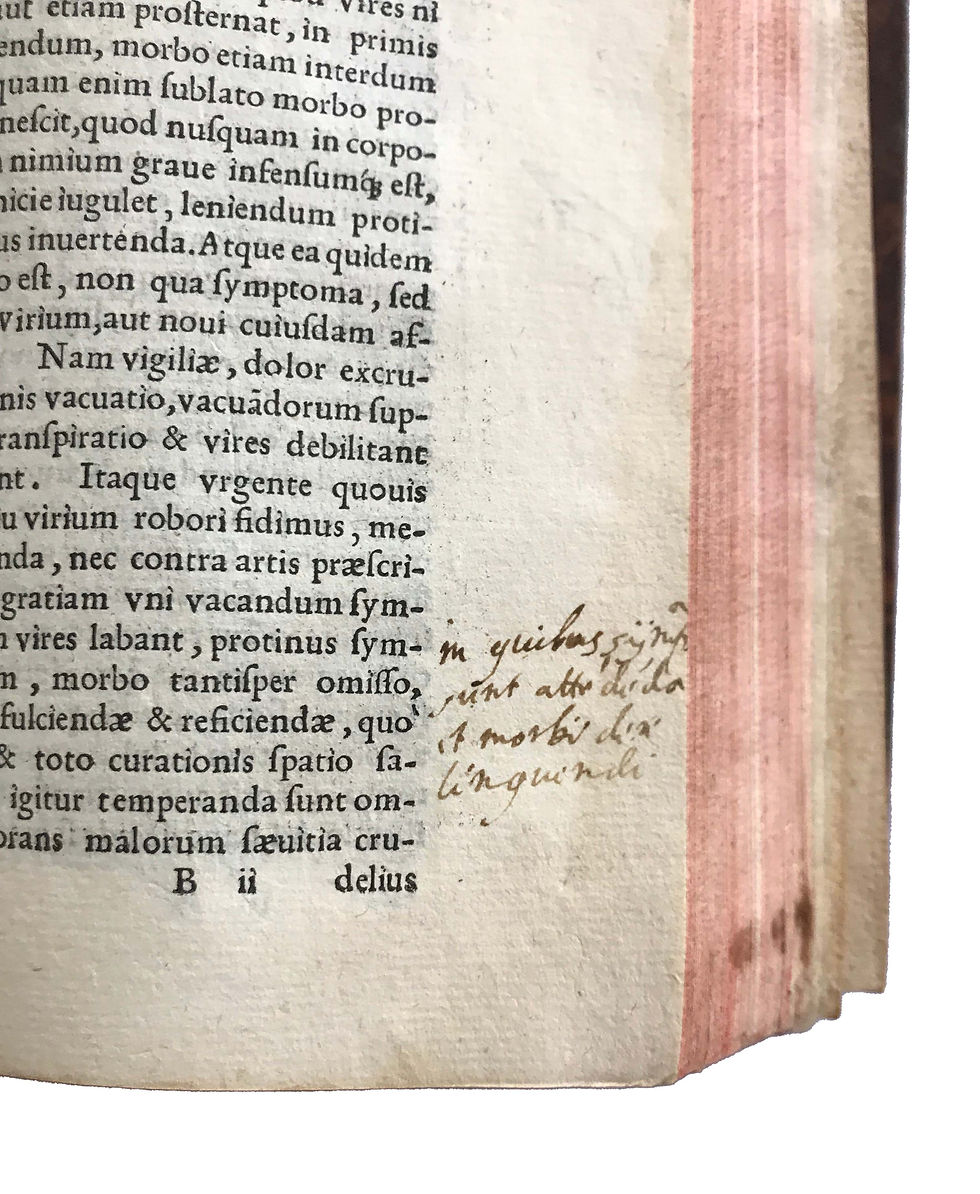 vires ni
aut etiam proſternat, in primis
endum, morbo etiam interdum
quam enim ſublato morbo pro-
neſcit, quod nuſquam in corpo-
nimium graue infenſumq́; eſt,
nicie iugulet, leniendum proti-
us inuertenda. Atque ea quidem
o eſt, non qua ſymptoma, ſed
virium, aut noui cuiuſdam af-
Nam vigiliæ, dolor excru-
nis vacuatio, vacuādorum ſup-
ranſpiratio & vires debilitant
nt. Itaque vrgente quouis
u virium robori fidimus, me-
nda, nec contra artis præſcri-
gratiam vni vacandum ſym-
vires labant, protinus ſym-
m, morbo tantiſper omiſſo,
fulciendæ & reficiendæ, quo
& toto curationis ſpatio ſa-
igitur temperanda ſunt om-
orans malorum ſæuitia cru-
B ii delius
in quibus
sunt
et morbi
linquendi